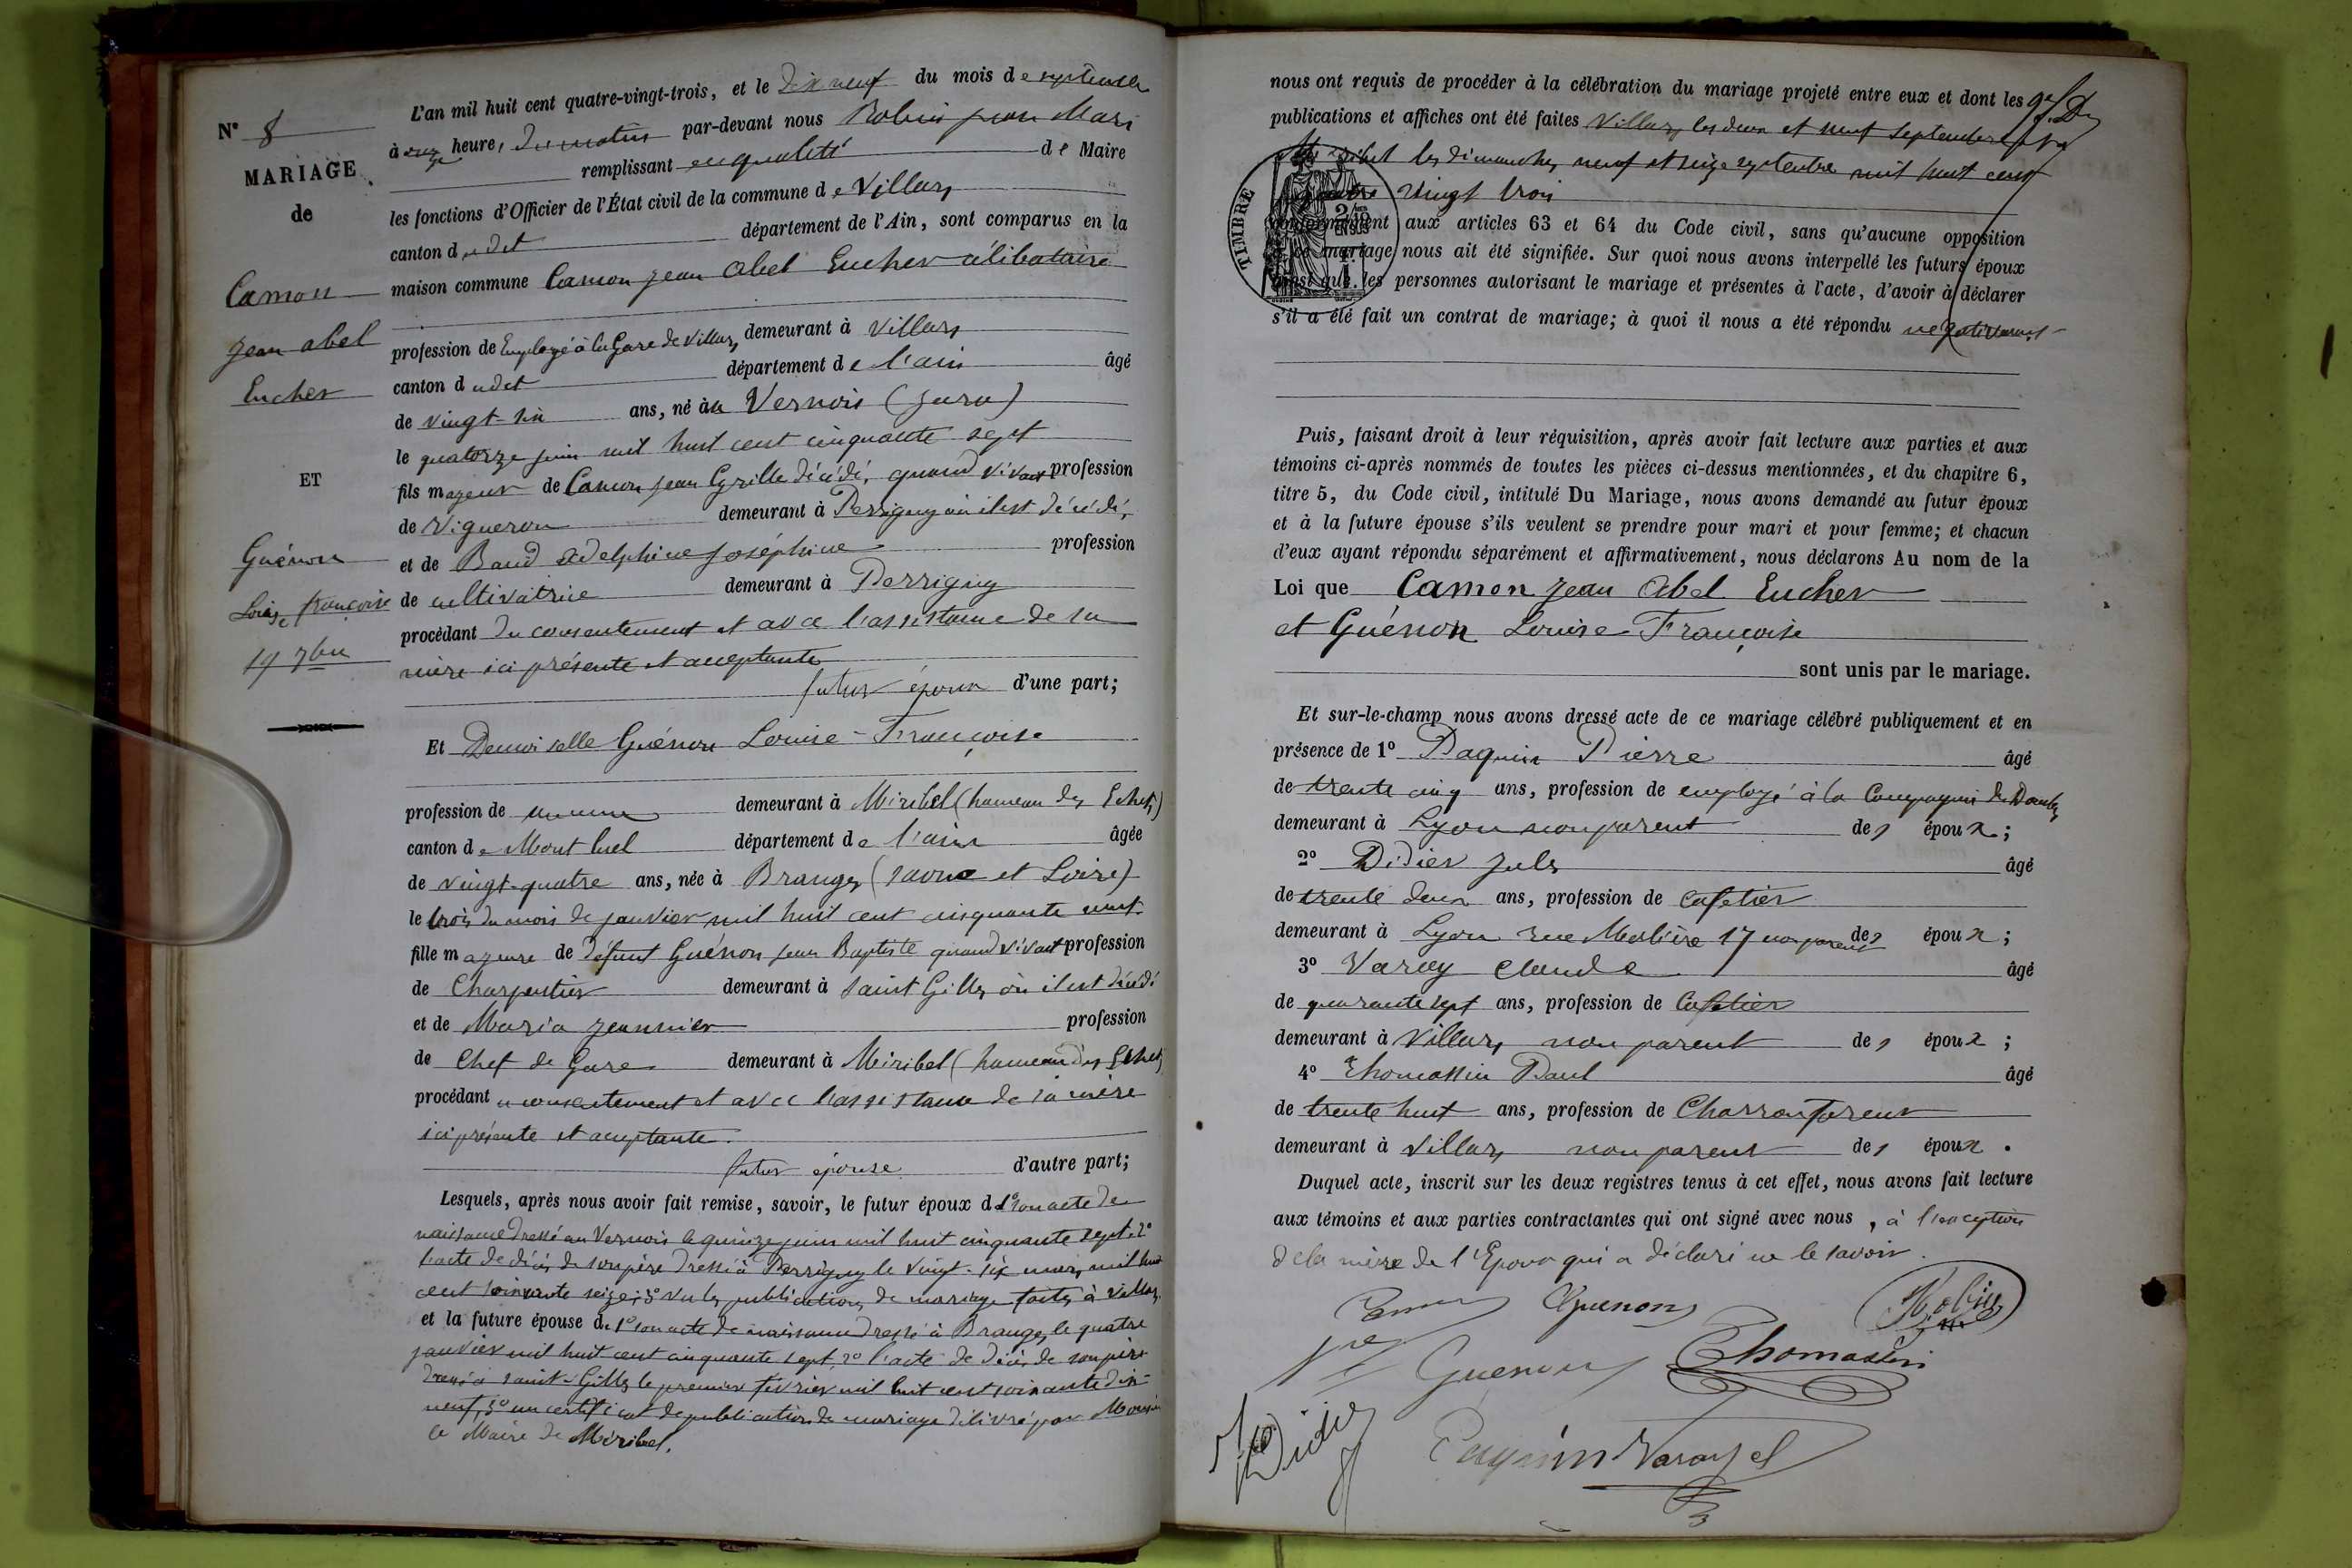 N° 8
MARIAGE
de
Camon
Jean Abel
Eucher
ET
Guénon
Louise françoise
19 7bre
L'an mil huit cent quatre-vingt-trois, et le dix neuf du mois de septembre
à onze heures du matin par-devant nous Robin Jean Mari
remplissant en qualité de Maire
les fonctions d'Officier de l'État civil de la commune de Villars
canton dudit département de l'Ain, sont comparus en la
maison commune Camon Jean Abel Eucher célibataire
profession de Employé à la Gare de Villars, demeurant à Villars
canton dudit département de l'ain âgé
de vingt six ans, né au Vernois (Jura)
le quatorze juin mil huit cent cinquante sept
fils majeur de Camon Jean Cyrille décédé, quand vivait profession
de Vigneron demeurant à Perrigny où il est décédé,
et de Baud Adelphine Joséphine profession
de cultivatrice demeurant à Perrigny
procédant du consentement et avec l'assistance de sa
mère ici présente et acceptante
futur époux d'une part;
Et Demoiselle Guénon Louise-Françoise
profession de demeurant à Miribel (hameau des Echets)
canton de Mont luel département de l'ain âgée
de vingt-quatre ans, née à Branges (Saone et Loire)
le trois du mois de janvier mil huit cent cinquante neuf
fille majeure de défunt Guénon Jean Baptiste quand vivait profession
de Charpentier demeurant à Saint Gilles où il est décédé
et de Maria Jeannier profession
de Chef de Gare demeurant à Miribel (hameau des Echets)
procédant consentement et avec l'assistance de sa mère
ici présente et acceptante.
futur épouse d'autre part;
Lesquels, après nous avoir fait remise, savoir, le futur époux de 1° son acte de
naissance dressé au Vernois le quinze juin mil huit cinquante sept 2°
l'acte de décès de son père dressé à Perrigny le vingt-six mars mil huit
cent soixante seize; 3° vu les publications de mariage faites à Villars
et la future épouse de 1° son acte de naissance dressé à Branges le quatre
janvier mil huit cent cinquante sept, 2° l'acte de décès de son père
dressé à Saint-Gilles le premier février mil huit cent soixante dix-
neuf, 3° un certificat de publication de mariage délivré par Monsieur
le Maire de Miribel.
nous ont requis de procéder à la célébration du mariage projeté entre eux et dont les
publications et affiches ont été faites Villars, les deux et neuf septembre
les dimanches neuf et seize septembre mil huit cent
quatre vingt trois
TIMBRE
conformément aux articles 63 et 64 du Code civil, sans qu'aucune opposition
à ce mariage nous ait été signifiée. Sur quoi nous avons interpellé les futurs époux
ainsi que les personnes autorisant le mariage et présentes à l'acte, d'avoir à déclarer
s'il a été fait un contrat de mariage; à quoi il nous a été répondu négativement
Puis, faisant droit à leur réquisition, après avoir fait lecture aux parties et aux
témoins ci-après nommés de toutes les pièces ci-dessus mentionnées, et du chapitre 6,
titre 5, du Code civil, intitulé Du Mariage, nous avons demandé au futur époux
et à la future épouse s'ils veulent se prendre pour mari et pour femme; et chacun
d'eux ayant répondu séparément et affirmativement, nous déclarons Au nom de la
Loi que Camon Jean Abel Eucher
et Guénon Louise Françoise
sont unis par le mariage.
Et sur-le-champ nous avons dressé acte de ce mariage célébré publiquement et en
présence de 1° Paquin Pierre âgé
de trente cinq ans, profession de employé à la Compagnie des Dombes
demeurant à Lyon non parent des époux;
2° Didier Jules âgé
de trente deux ans, profession de Cafetier
demeurant à Lyon rue Molière 17 non parent des époux;
3° Varay Claude âgé
de quarante sept ans, profession de Cafetier
demeurant à Villars non parent des époux;
4° Thomassin Paul âgé
de trente huit ans, profession de Charron foreur
demeurant à Villars non parent des époux.
Duquel acte, inscrit sur les deux registres tenus à cet effet, nous avons fait lecture
aux témoins et aux parties contractantes qui ont signé avec nous, à l'exception
de la mère de l'Epoux qui a déclaré ne le savoir.
Guenon Robin
Guenon Thomassin
Didier Paquin Varay cl